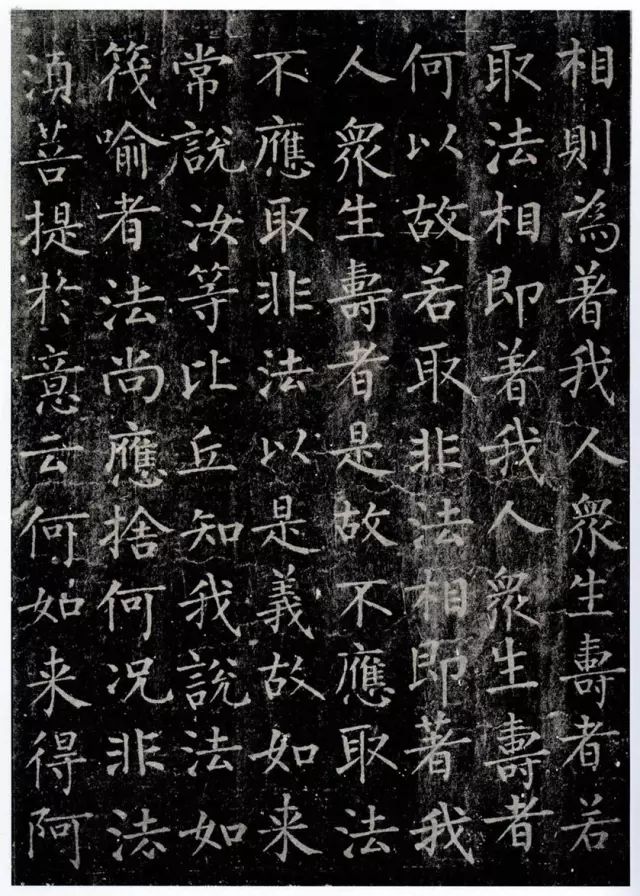 相則為著我人眾生壽者若
取法相即著我人眾生壽者
何以故若取非法相即著我
人眾生壽者是故不應取法
不應取非法以是義故如来
常說汝等比丘知我說法如
筏喻者法尚應捨何況非法
湏菩提於意云何如来得阿